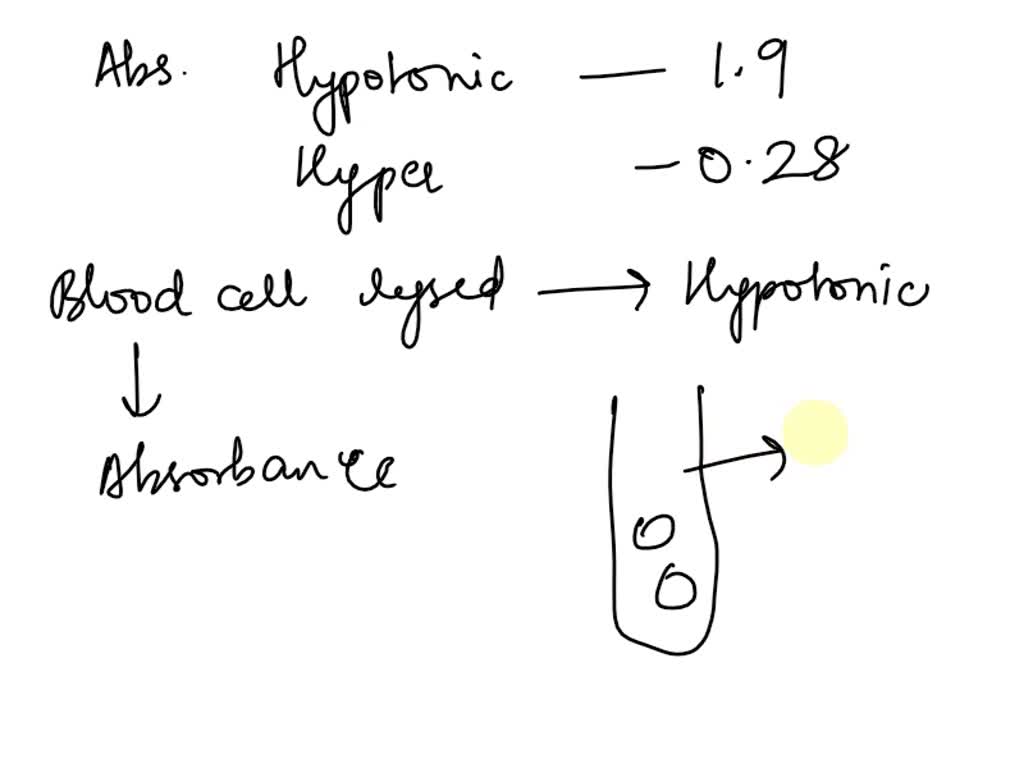 Abs. Hypotonic — 1.9
Hyper — 0.28
Blood cell lysed → Hypotonic
↓
Absorbance